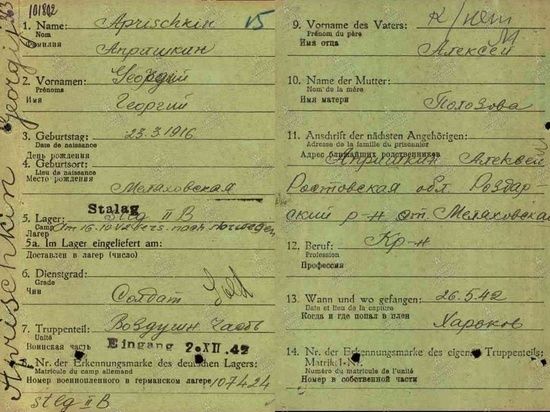 101802
Aprischkin Georgij
15
1. Name: Aprischkin
Nom
Фамилия Апришкин
2. Vornamen: Georgij
Prénoms
Имя Георгий
3. Geburtstag: 23.3.1916
Date de naissance
День рождения
4. Geburtsort:
Lieu de naissance
Место рождения
Мелаховская
Stalag
5. Lager: Stlg II B
Camp Am 16.10 V. vers. nach Norwegen
Лагерь
5a. Im Lager eingeliefert am:
Доставлен в лагерь (число)
6. Dienstgrad:
Grade
Чин Солдат Sold
7. Truppenteil: Воздушн часть
Unité
Воинская часть Eingang 2.XII.42
8. Nr. der Erkennungsmarke des deutschen Lagers:
Matricule du camp allemand
Номер военнопленного в германском лагере 107424
Stlg II B
9. Vorname des Vaters:
Prénom du père
Имя отца Алексей
10. Name der Mutter:
Nom de la mère
Имя матери Полозова
11. Anschrift der nächsten Angehörigen:
Adresse de la famille du prisonnier
Адрес ближайших родственников
Апришкин Алексей
Ростовская обл Роздар-
ский р-н ст. Мелаховская
12. Beruf: Кр-н
Profession
Профессия
13. Wann und wo gefangen: 26.5.42
Date et lieu de la capture
Когда и где попал в плен
Харьков
14. Nr. der Erkennungsmarke des eigenen Truppenteils:
Matrikel-Nr.
Numéro du matricule de l'unité
Номер в собственной части